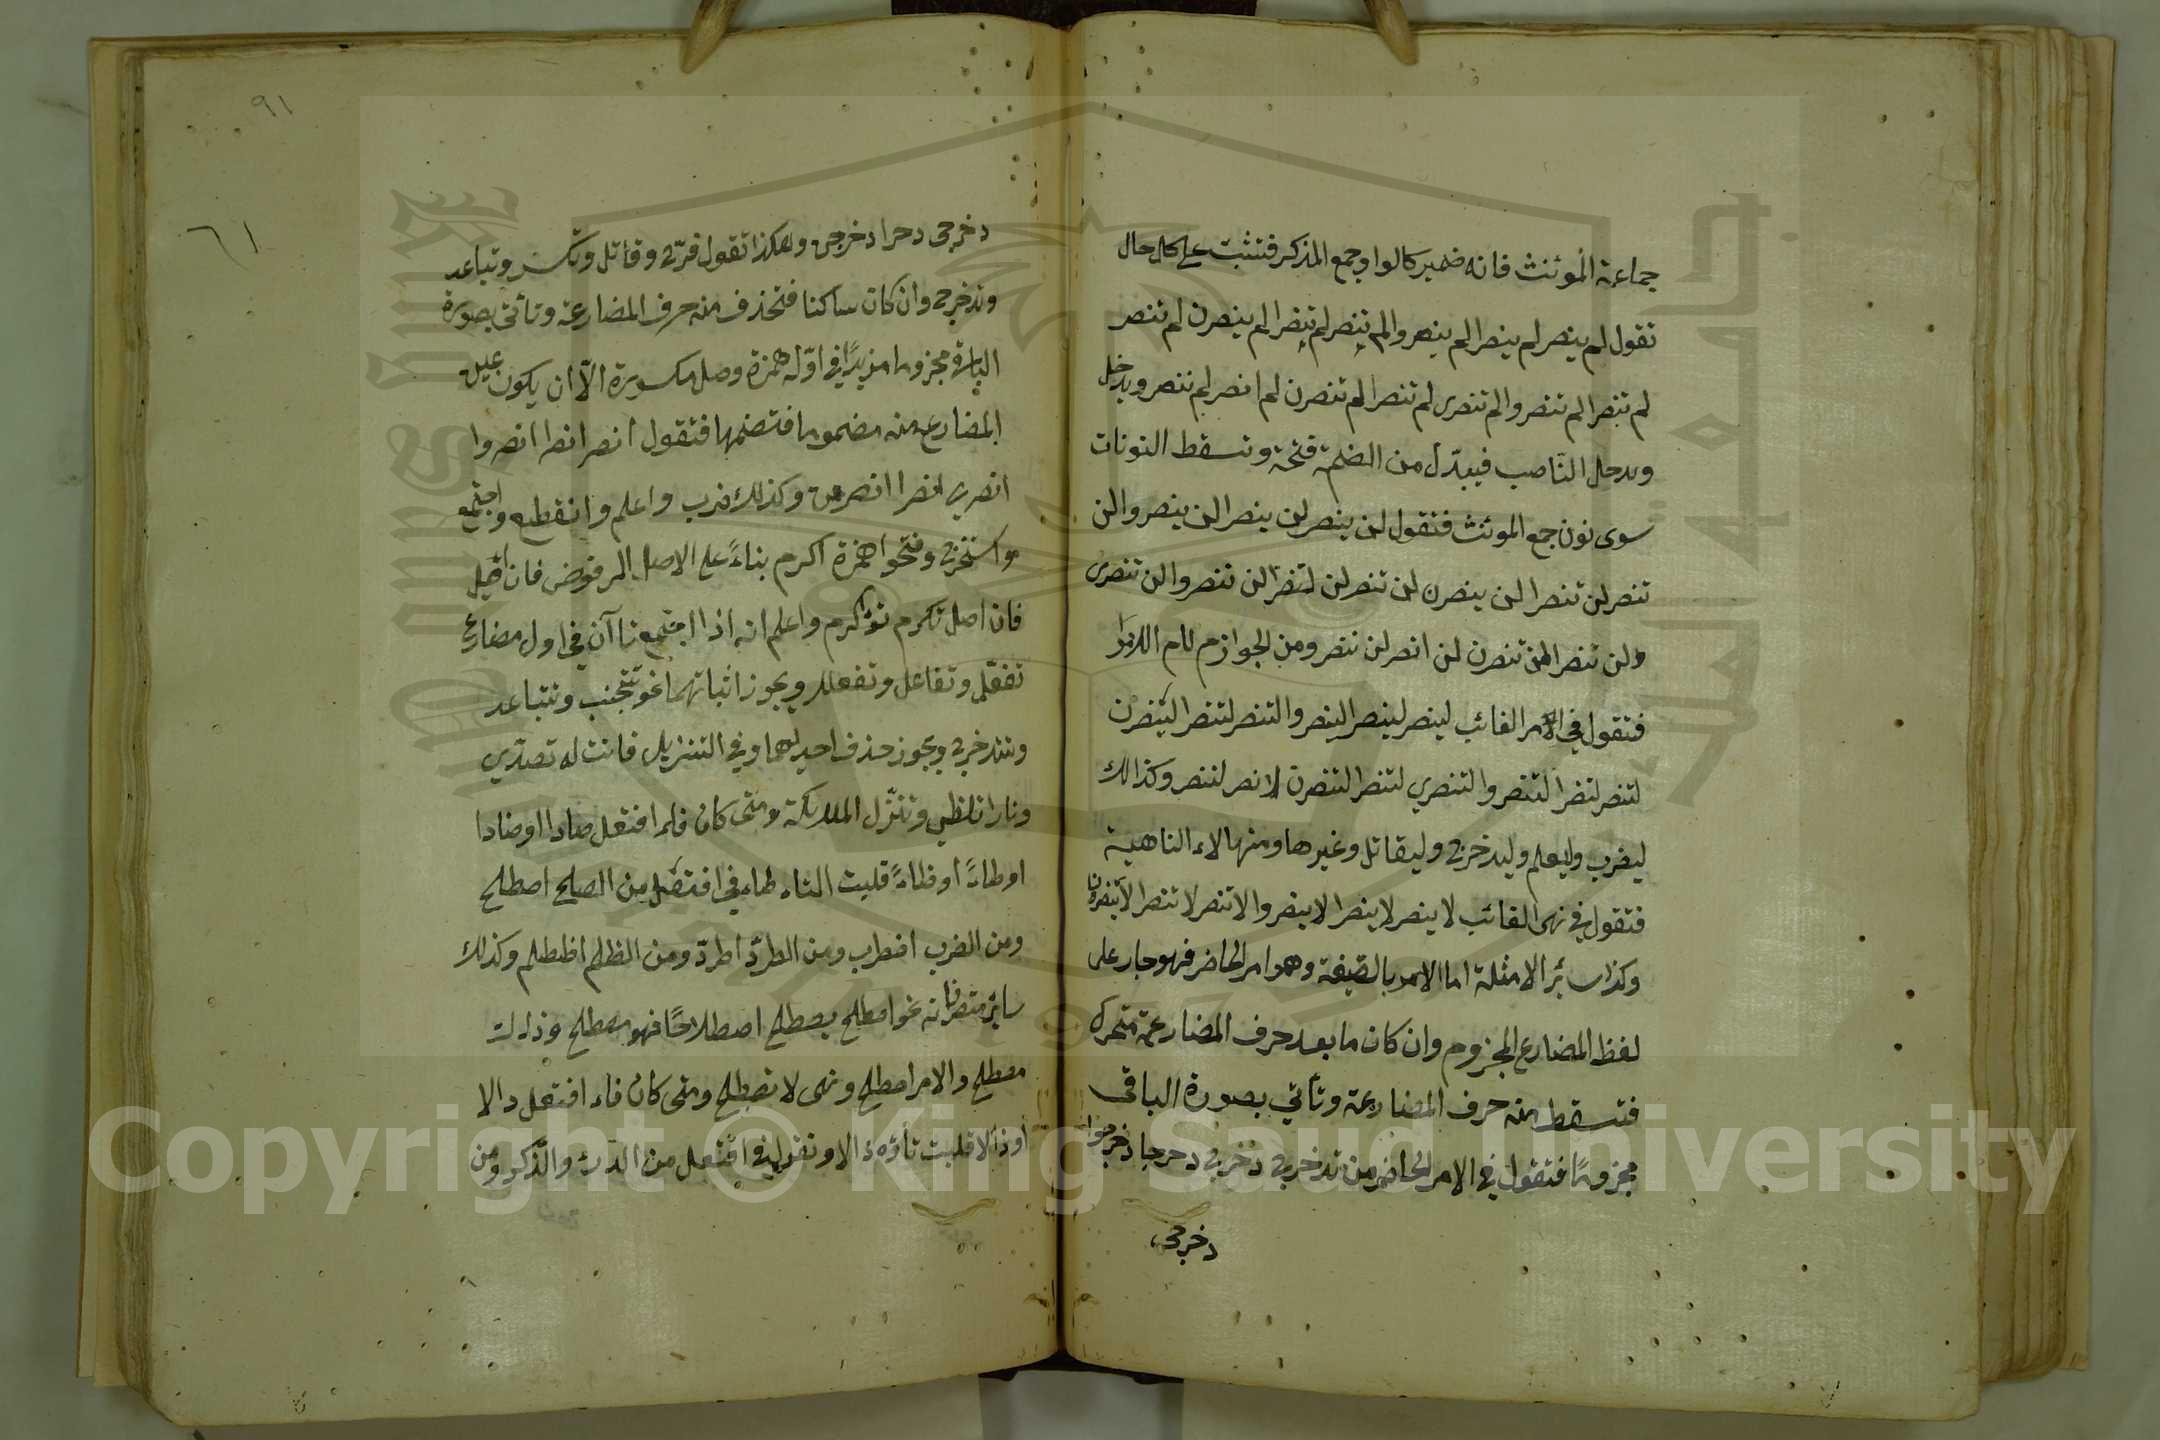 جماعة المؤنث فانه ضمير كالواو جمع المذكر فتثبت على كل حال
تقول لم ينصر لم ينصرا لم ينصروا لم تنصر لم تنصرا لم ينصرن لم تنصر
لم تنصرا لم تنصروا لم تنصرى لم تنصرا لم تنصرن لم انصر لم ننصر ويدخل
ويدخل الناصب فيبدّل من الضمة فتحة وتسقط النونات
سوى نون جمع المؤنث فتقول لن ينصر لن ينصرا لن ينصروا لن
تنصر لن تنصرا لن ينصرن لن تنصر لن تنصرا لن تنصروا لن تنصرى
ولن تنصرا لن تنصرن لن انصر لن ننصر ومن الجوازم لام الامر
فتقول في الامر الغائب لينصر لينصرا لينصروا لتنصر لتنصرا لينصرن
لتنصر لتنصرا لتنصروا لتنصري لتنصرا لتنصرن لانصر لننصر وكذالك
ليضرب وليعلم وليدحرج وليقاتل وغيرها ومنها لاء الناهية
فتقول في نهى الغائب لا ينصر لا ينصرا لا ينصروا لا تنصر لا تنصرا لا ينصرن
وكذا سائر الامثلة اما الامر بالصيغة وهو امر الحاضر فهو جار على
لفظ المضارع المجزوم وان كان ما بعد حرف المضارعة متحرك
فتسقط منه حرف المضارعة وتأتي بصورة الباقى
مجزومًا فتقول في الامر الحاضر من تدحرج دحرج دحرجا دحرجوا
دحرجى
٩١
٦١
دحرجى دحرا دحرجن وهكذا تقول فرّح وقاتل وتكسر وتباعد
وتدحرج وان كان ساكنا فتحذف منه حرف المضارعة وتأتى بصورة
الباقى مجزوما مزيدًا في اوّله همزة وصل مكسورة الّا ان يكون عين
المضارع منه مضموما فتضمها فتقول انصر انصرا انصروا
انصري انصرا انصرن وكذلك ضرب واعلم وانقطع واجتمع
واستخرج وفتحوا همزة اكرم بناءً على الاصل المرفوض فان قيل
فان اصل تكرم تؤكرم واعلم انه اذا اجتمع تاآن في اول مضارع
تفعّل وتفاعل وتفعلل ويجوز اثباتهما نحو تتجنب وتتباعد
وتتدحرج ويجوز حذف احديهما وفي التنزيل فانت له تصدّي
ونارا تلظى وتنزّل الملائكة ومتى كان فاء افتعل صادا او ضادا
او طاءً او ظاءً قلبت التاء طاء في افتعل من الصلح اصطلح
ومن الضرب اضطرب ومن الطردّ اطردّ ومن الظلم اظطلم وكذلك
سائر متصرفاته نحو اصطلح يصطلح اصطلاحًا فهو مصطلح وذلك
مصطلح والامر اصطلح ونهى لا تصطلح ومتى كان فاء افتعل دالا
او ذالا قلبت تاؤه دالا وتقول في افتعل من الدرء والذّكر ومن
Copyright © King Saud University